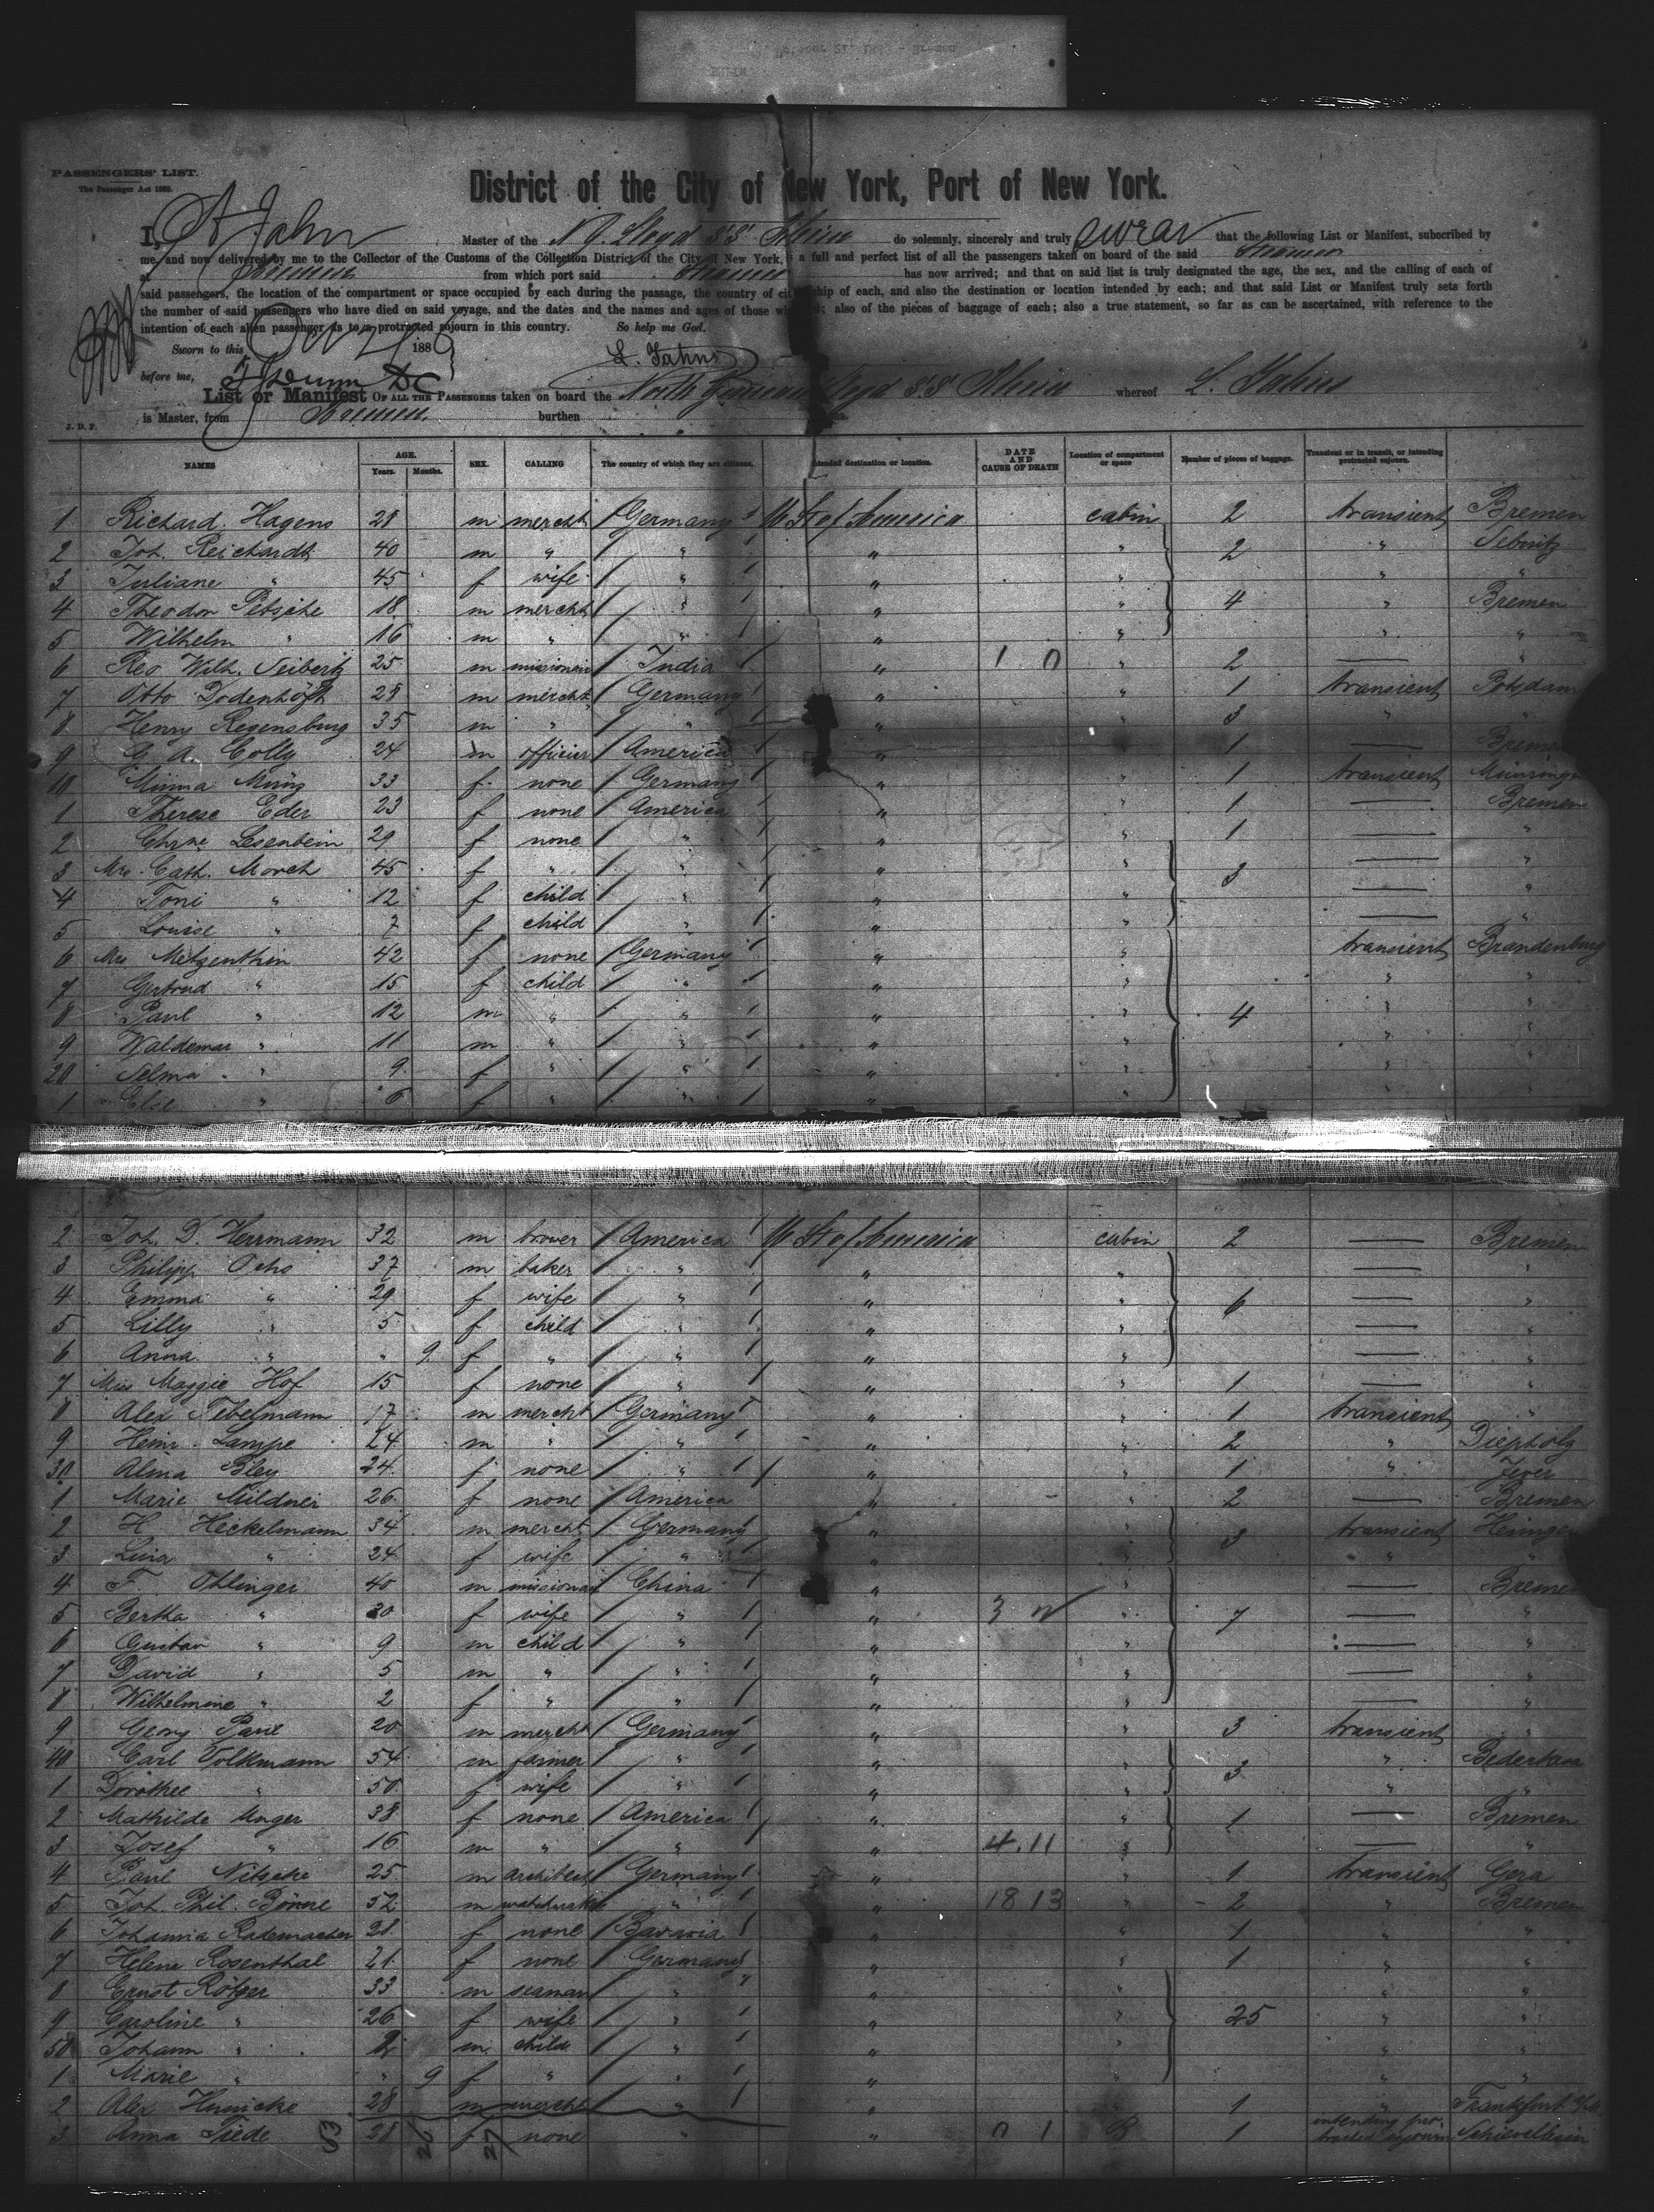 PASSENGERS' LIST.
The Passenger Act 1882.
District of the City of New York, Port of New York.
I, Master of the N. G. Lloyd SS Rhein do solemnly, sincerely and truly swear that the following List or Manifest, subscribed by
me, and now delivered by me to the Collector of the Customs of the Collection District of the City of New York, is a full and perfect list of all the passengers taken on board of the said Steamer
at Bremen from which port said Steamer has now arrived; and that on said list is truly designated the age, the sex, and the calling of each of
said passengers, the location of the compartment or space occupied by each during the passage, the country of citizenship of each, and also the destination or location intended by each; and that said List or Manifest truly sets forth
the number of said passengers who have died on said voyage, and the dates and the names and ages of those who died; also of the pieces of baggage of each; also a true statement, so far as can be ascertained, with reference to the
intention of each alien passenger as to a protracted sojourn in this country. So help me God.
Sworn to this Oct 21 1886
before me, L. Jahns
List or Manifest OF ALL THE PASSENGERS taken on board the North German Lloyd SS Rhein whereof L. Jahns
is Master, from Bremen. burthen tons.
J. D. P.
NAMES AGE. Years. Months. SEX. CALLING The country of which they are citizens. Intended destination or location. DATE AND CAUSE OF DEATH Location of compartment or space Number of pieces of baggage. Transient or in transit, or intending protracted sojourn.
1 Richard Hagens 28 m mercht Germany U St of America cabin 2 transient Bremen
2 Joh. Reichardt 40 m " " " " 2 " Sebnitz
3 Juliane " 45 f wife " " " " "
4 Theodor Petsche 18 m mercht " " " 4 " Bremen
5 Wilhelm " 16 m " " " " " "
6 Rev Wilh. Seibertz 25 m missionair India " 1 0 " 2 — "
7 Otto Dodenhöft 25 m mercht Germany " " 1 transient Potsdam
8 Henry Regensburg 35 m " " " " 3 " "
9 G. A. Colly 24 m officier America " " 1 — Bremen
10 Minna Münz 33 f none Germany " " 1 transient
1 Therese Eder 23 f none America " " 1 — Bremen
2 Chrne Lesenbein 29 f none " " " 1 — "
3 Mrs. Cath. Morch 45 f " " " " 3 — "
4 Toni " 12 f child " " " — "
5 Louise " 7 f child " " " — "
6 Mrs Metzenthin 42 f none Germany " " transient Brandenburg
7 Gertrud " 15 f child " " " " "
8 Paul " 12 m " " " " 4 " "
9 Waldemar " 11 m " " " " " "
20 Selma " 9 f " " " " " "
1 Else " 6 f " " " " " "
2 Joh. D. Herrmann 32 m brower America U St of America cabin 2 — Bremen
3 Philipp Ochs 37 m baker " " " — "
4 Emma " 29 f wife " " " 6 — "
5 Lilly " 5 f child " " " — "
6 Anna " " 9 f " " " " — "
7 Miss Maggie Hof 15 f none " " " 1 — "
8 Alex Tebelmann 17 m mercht Germany " " 1 transient "
9 Heinr. Lampe 24 m " " " " 2 " Diepholz
30 Alma Bley 24 f none " " " 1 " Jever
1 Marie Mildner 26 f none America " " 2 — Bremen
2 H. Heckelmann 34 m mercht Germany " " 3 transient
3 Lina " 24 f wife " " " " "
4 F. Ohlinger 40 m missionair China " " — Bremen
5 Bertha " 30 f wife " " " 7 — "
6 Gustav " 9 m child " " " — "
7 David " 5 m " " " " — "
8 Wilhelmine " 2 f " " " " — "
9 Georg Paul 20 m mercht Germany " " 3 transient "
40 Carl Volkmann 54 m farmer " " " 3 " Bederkesa
1 Dorothee " 50 f wife " " " " "
2 Mathilde Unger 38 f none America " " 1 — Bremen
3 Josef " 16 m " " " 4.11 " — "
4 Paul Nitzsche 25 m architect Germany " " 1 transient Gera
5 Joh. Phil. Bönne 52 m " " 18 13 " 2 " Bremen
6 Johanna Rademacher 21 f none Bavaria " " 1 " "
7 Helene Rosenthal 21 f none Germany " " 1 " "
8 Ernst Rötger 33 m seaman " " " " "
9 Caroline " 26 f wife " " " 25 " "
50 Johann " 2 m child " " " " "
1 Marie " " 9 f " " " " " "
2 Alex Hunicke 28 m mercht " " " 1 " Frankfurt
3 Anna Tiede 28 f none " " 0 1 B 1 intending protracted sojourn Schievelbein
53 26 27